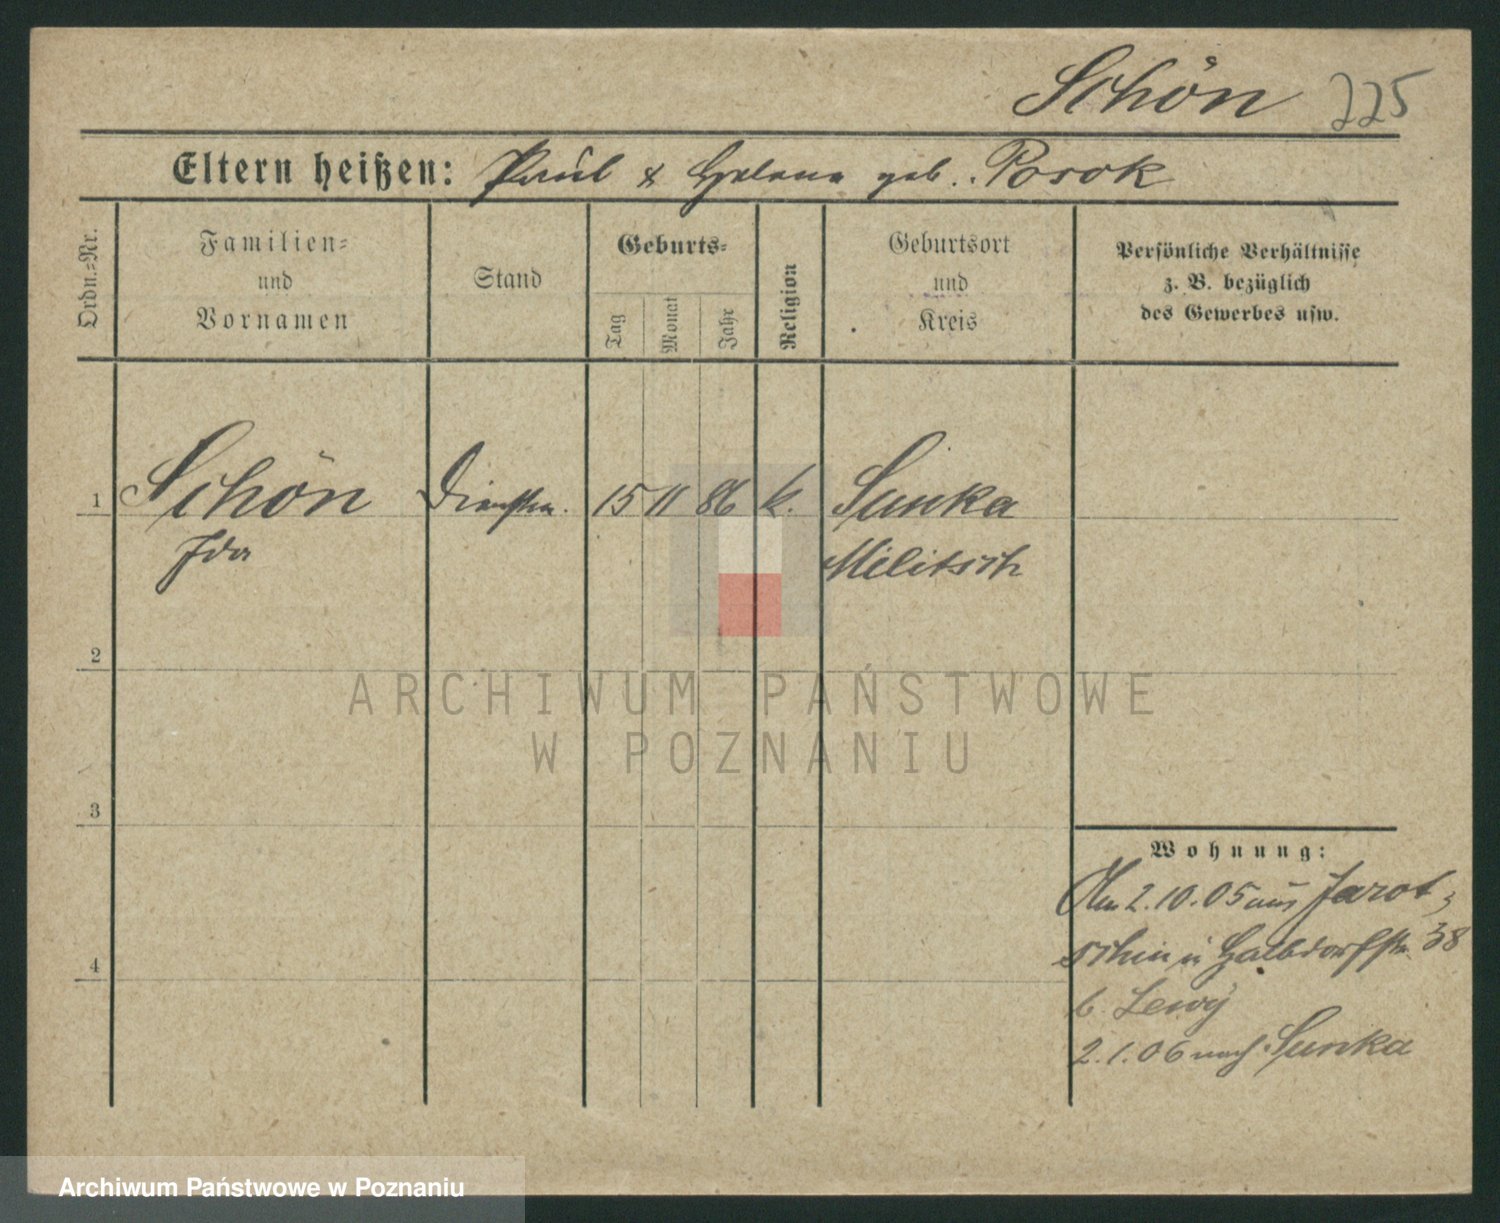 Schön 225
Eltern heißen: Paul & Helene geb. Posok
Ordn.=Nr.
Familien=
und
Vornamen
Stand
Geburts=
Tag
Monat
Jahr
Religion
Geburtsort
und
Kreis
Persönliche Verhältnisse
z. B. bezüglich
des Gewerbes usw.
1 Schön Dienstm. 15 11 86 k. Sunka
Ida Militsch
2
3
4
ARCHIWUM PAŃSTWOWE
W POZNANIU
Wohnung:
Am 2.10.05 aus Jarot=
schin in Halbdorfstr. 38
b. Lewy
2.1.06 nach Sunka
Archiwum Państwowe w Poznaniu